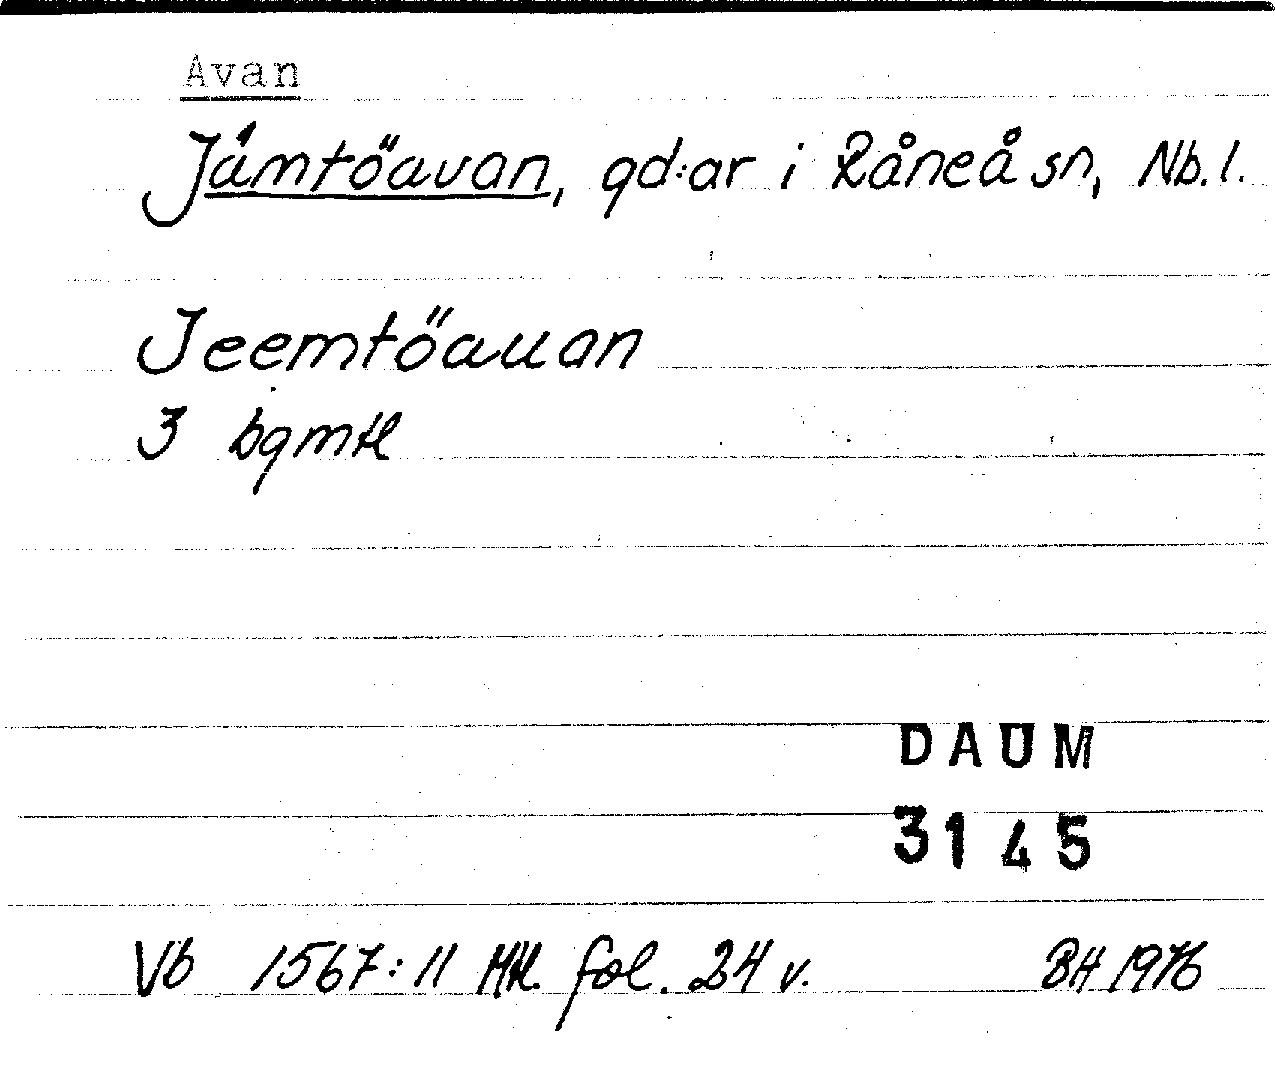 Avan
Jämtöavan, gd:ar i Råneå sn, Nb. l.
Jeemtöauan
3 bgmtl
DAUM
3145
Vb 1567:11 Mtl. fol. 24 v. BH 1976